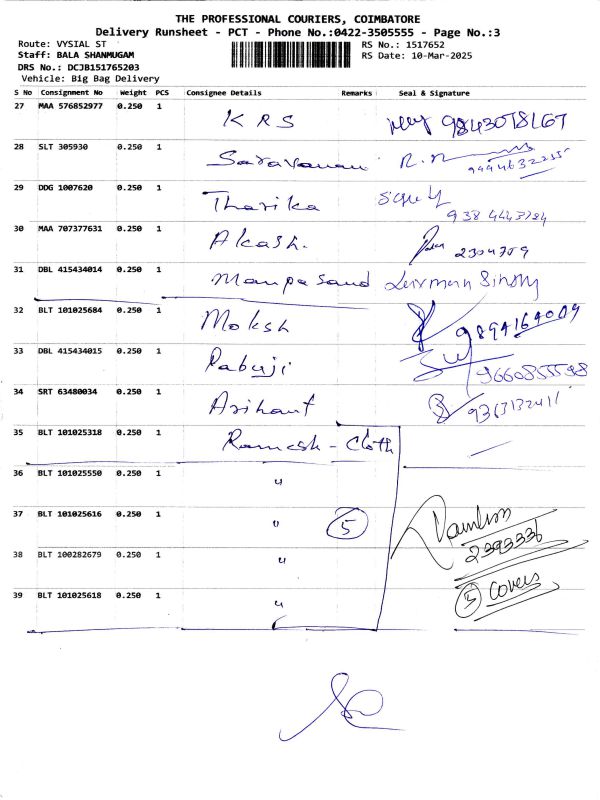 THE PROFESSIONAL COURIERS, COIMBATORE
Delivery Runsheet - PCT - Phone No.:0422-3505555 - Page No.:3
Route: VYSIAL ST
RS No.: 1517652
Staff: BALA SHANMUGAM
RS Date: 10-Mar-2025
DRS No.: DCJB151765203
Vehicle: Big Bag Delivery
S No Consignment No Weight PCS Consignee Details Remarks Seal & Signature
27 MAA 576852977 0.250 1 KRS
28 SLT 305930 0.250 1 Saravanan
29 DDG 1007620 0.250 1 Tharika
30 MAA 707377631 0.250 1 Akash. 2304709
31 DBL 415434014 0.250 1 Manpasand
32 BLT 101025684 0.250 1 Moksh 9894164009
33 DBL 415434015 0.250 1 Rabuji
34 SRT 63480034 0.250 1 Arihant
35 BLT 101025318 0.250 1 Ramesh - Cloth
36 BLT 101025550 0.250 1 "
37 BLT 101025616 0.250 1 " 5
38 BLT 100282679 0.250 1 "
2393336
39 BLT 101025618 0.250 1 "
5 Covers